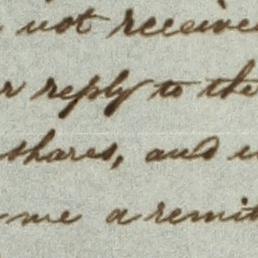 not received
reply to the
shares, and
me a remit